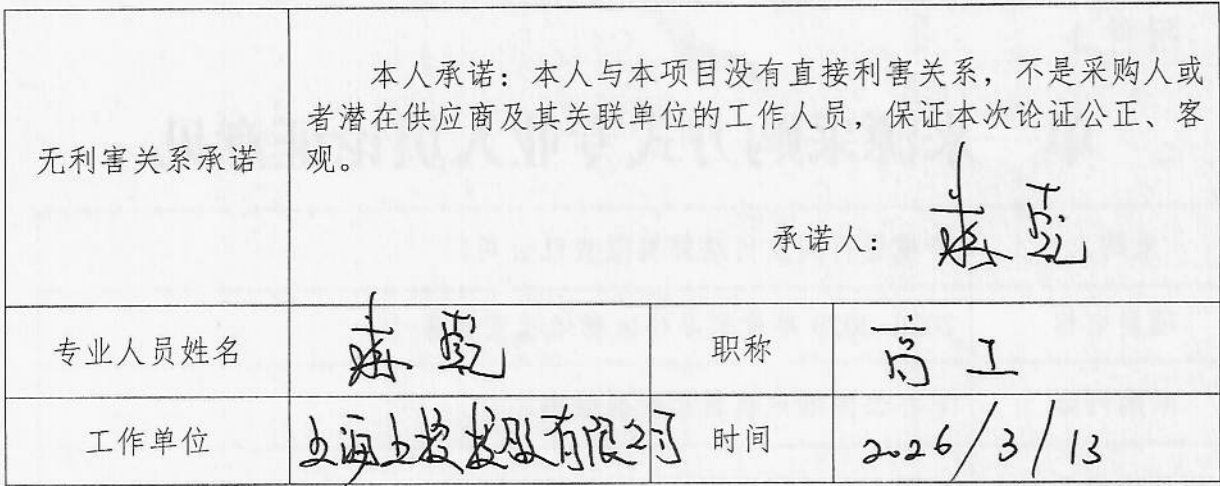 本人承诺：本人与本项目没有直接利害关系，不是采购人或
者潜在供应商及其关联单位的工作人员，保证本次论证公正、客
无利害关系承诺 观。
承诺人：
专业人员姓名 职称 高工
工作单位 有限公司 时间 2026/3/13